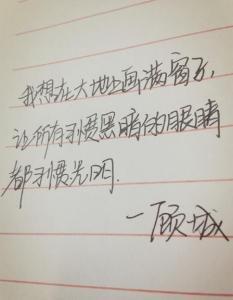 我想在大地上画满窗子,
让所有习惯黑暗的眼睛
都习惯光明.
—顾城